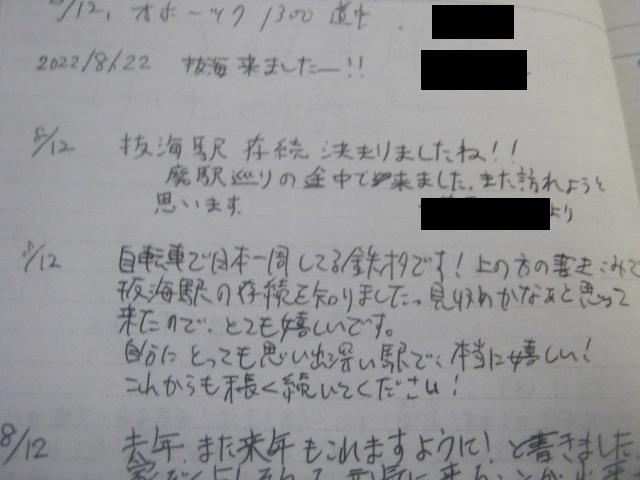 8/12, オホーツク 1300 道中.
2022/8/22 抜海来ましたー!!
8/12 抜海駅 存続 決まりましたね!!
廃駅巡りの途中で来ました。また訪れようと
思います。
より
8/12 自転車で日本一周してる鉄オタです! 上の方の書きこみで
抜海駅の存続を知りましたっ 見収めかなぁと思って
来たので、とても嬉しいです。
自分にとっても思い出深い駅で、本当に嬉しい!
これからも末長く続いてください!
8/12 去年、また来年もこれますように! と書きました。